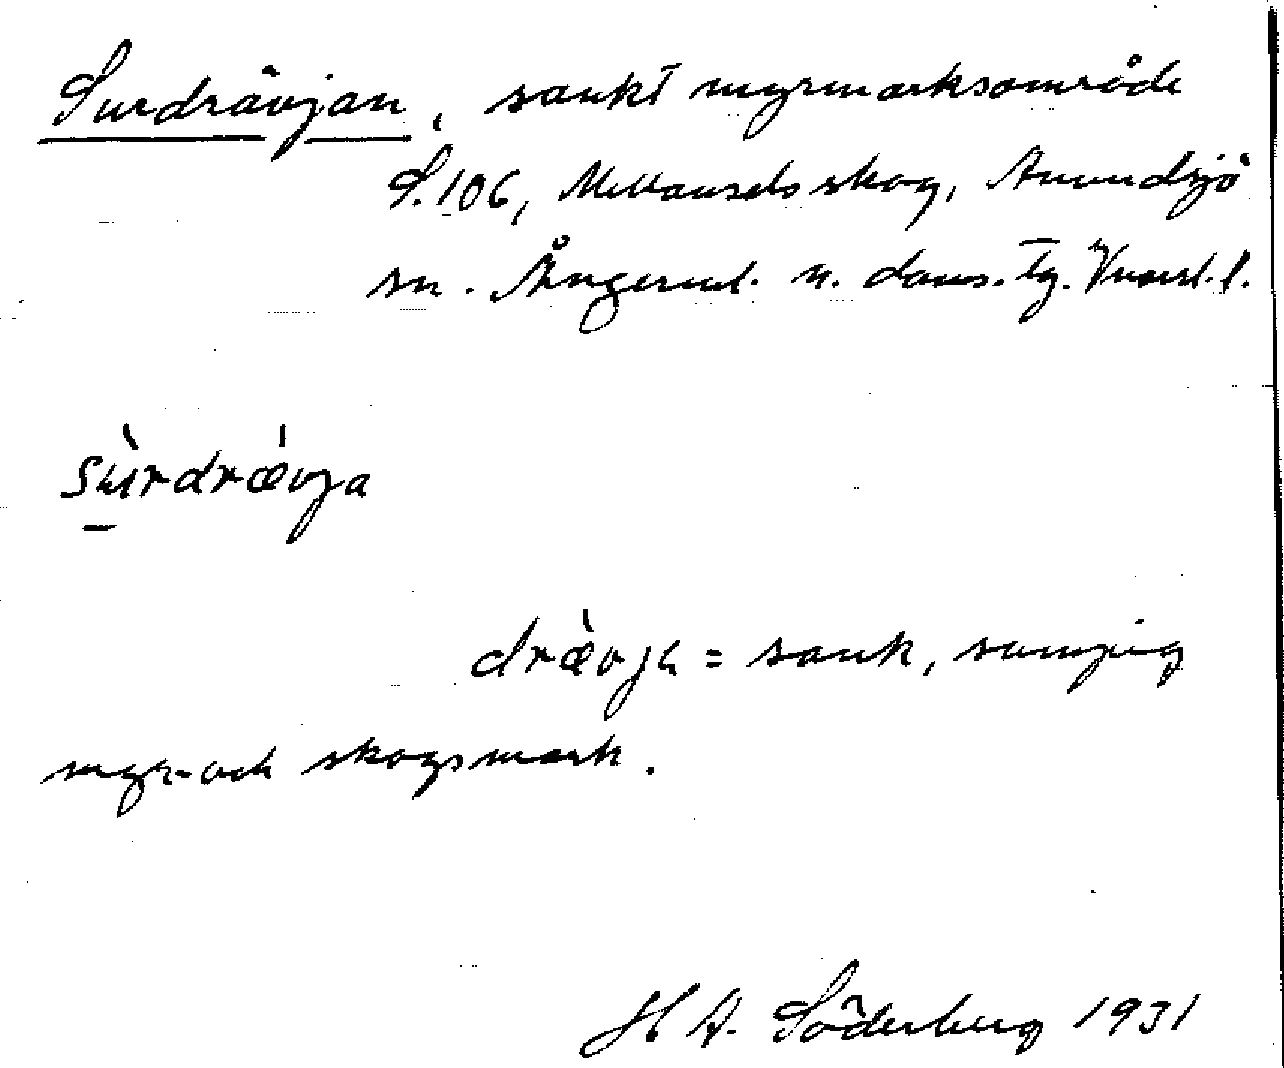 Surdrävjan, sankt myrmarksområde
S.106, Mellansels skog, Anundsjö
sn. Ångerml. n. doms. tg. Vnorrl. l.
sùrdrǽvja
drævja = sank, sumpig
myr- och skogsmark.
H A. Söderberg 1931